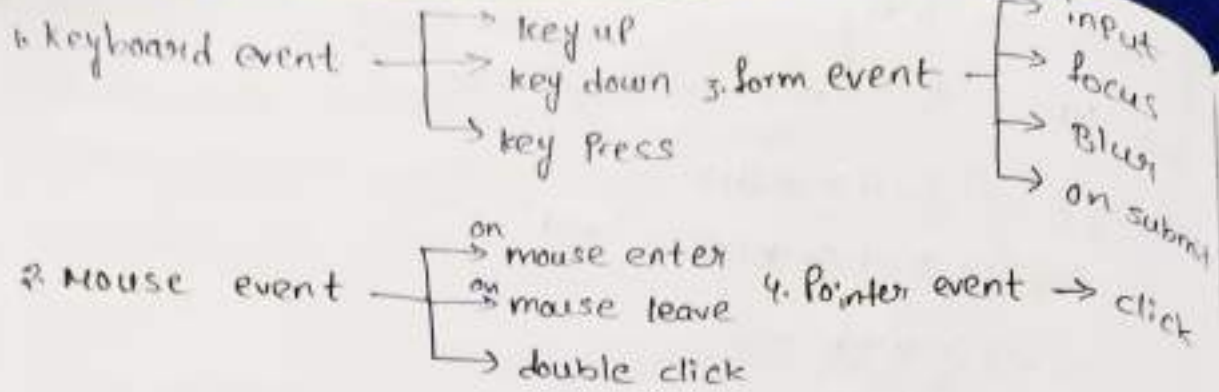 1. Keyboard event → key up
→ key down
→ key Press
3. form event → input
→ focus
→ Blur
→ on submit
2. Mouse event → on mouse enter
→ on mouse leave
→ double click
4. Pointer event → click